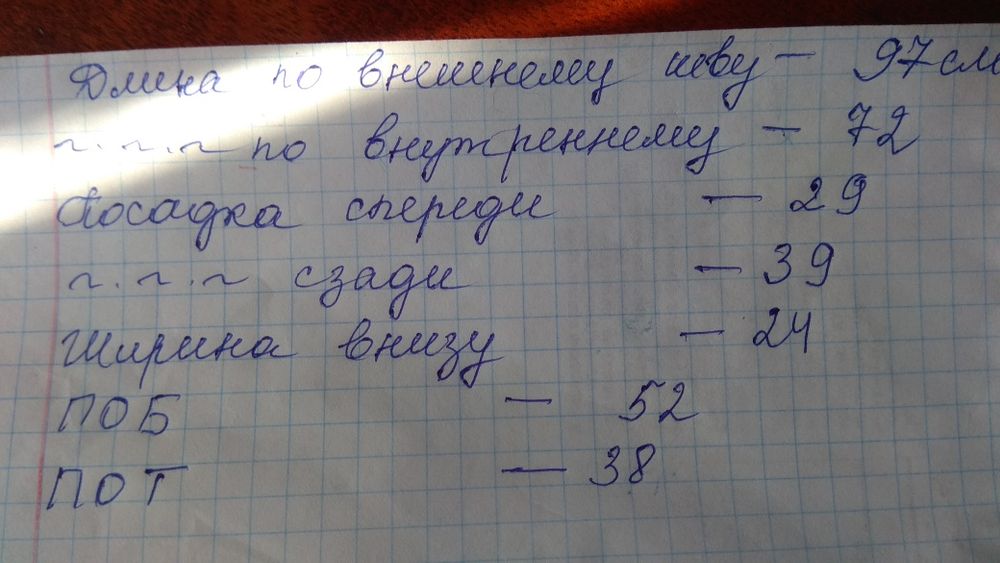 Длина по внешнему шву — 97см
~.~.~.~ по внутреннему — 72
Посадка спереди — 29
~.~.~.~ сзади — 39
Ширина внизу — 24
ПОБ — 52
ПОТ — 38